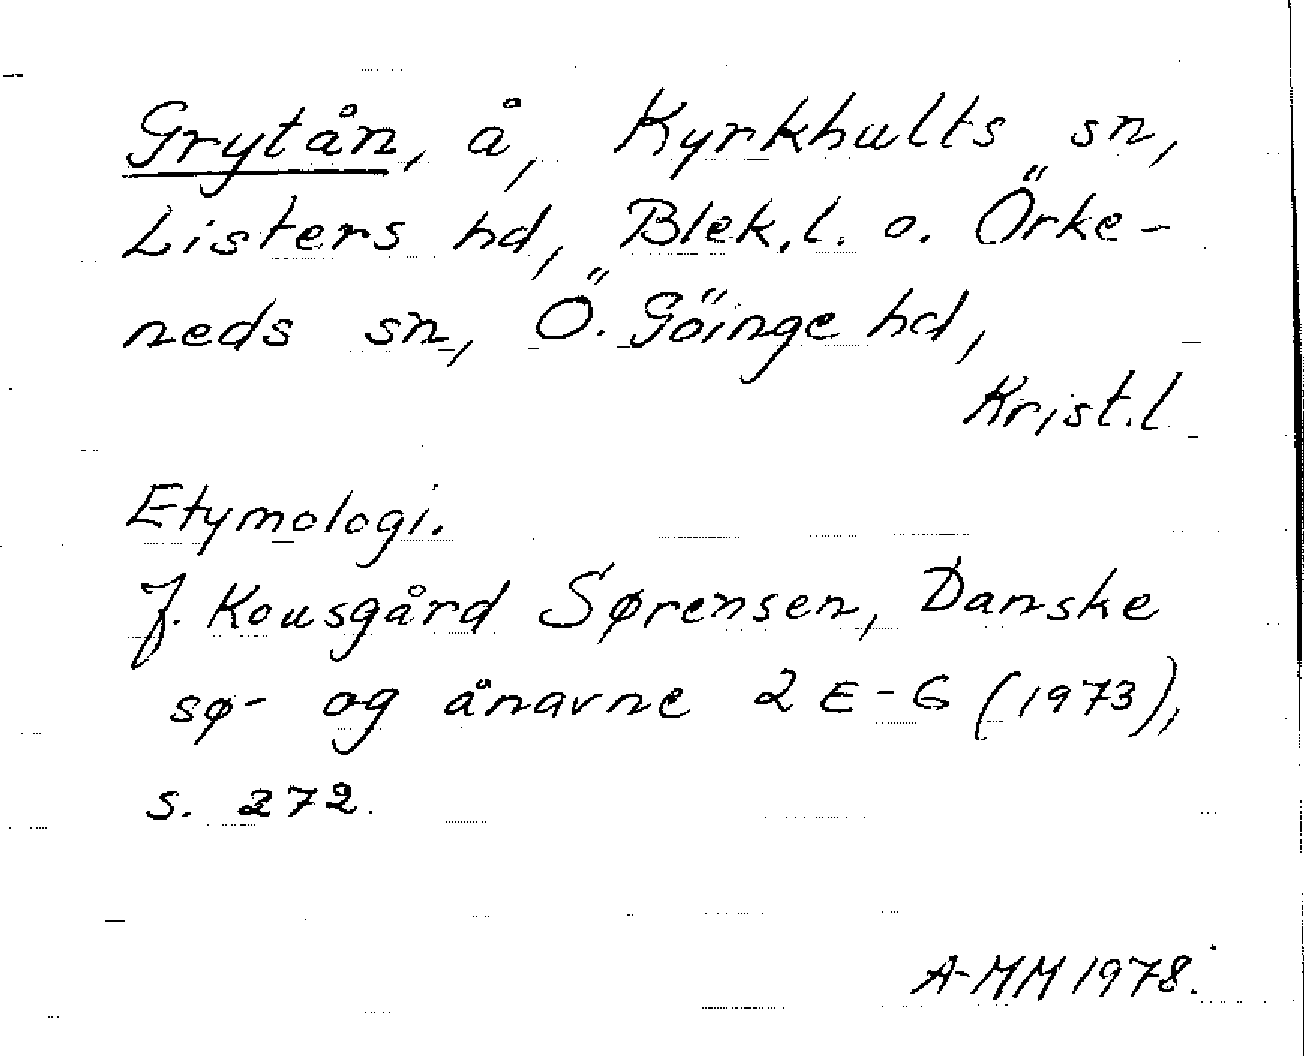 Grytån, å, Kyrkhults sn,
Listers hd, Blek.l. o. Örke-
neds sn, Ö. Göinge hd,
Krist.l
Etymologi.
J. Kousgård Sørensen, Danske
sø- og ånavne 2 E-G (1973),
s. 272.
A-MM 1978.